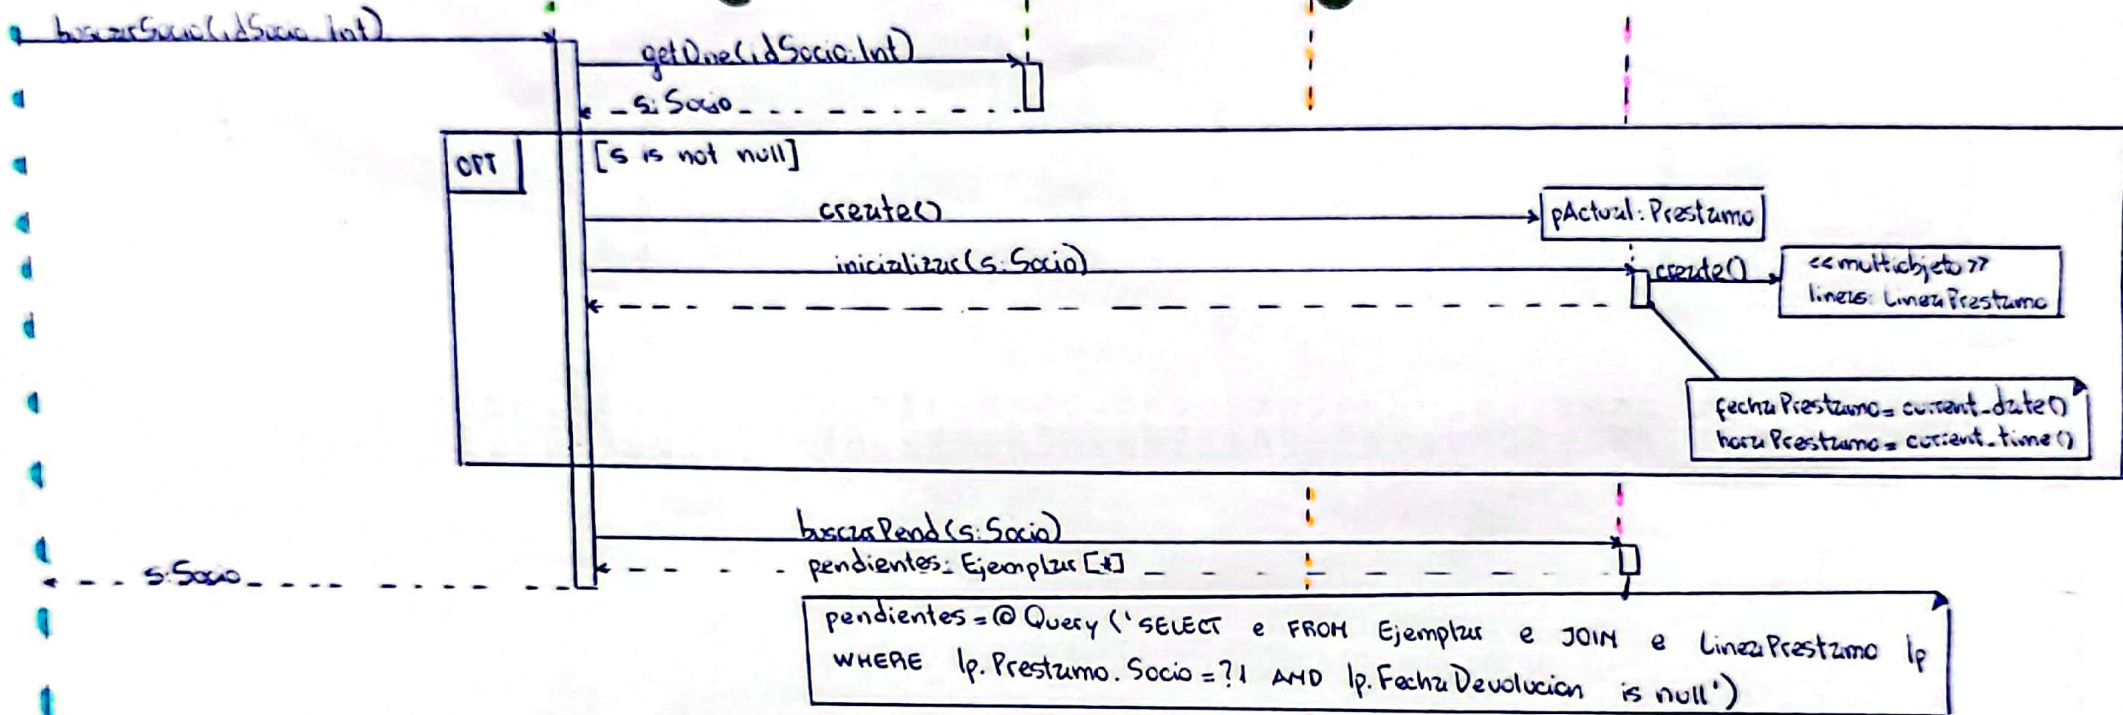 buscarSocio(idSocio:Int)
getOne(idSocio:Int)
s:Socio
OPT
[s is not null]
create()
pActual:Prestamo
inicializar(s:Socio)
create()
<<multiobjeto>>
lineas:LineaPrestamo
fechaPrestamo=current_date()
horaPrestamo=current_time()
buscarPend(s:Socio)
pendientes:Ejemplar[*]
s:Socio
pendientes=@Query('SELECT e FROM Ejemplar e JOIN e LineaPrestamo lp
WHERE lp.Prestamo.Socio=?1 AND lp.FechaDevolucion is null')